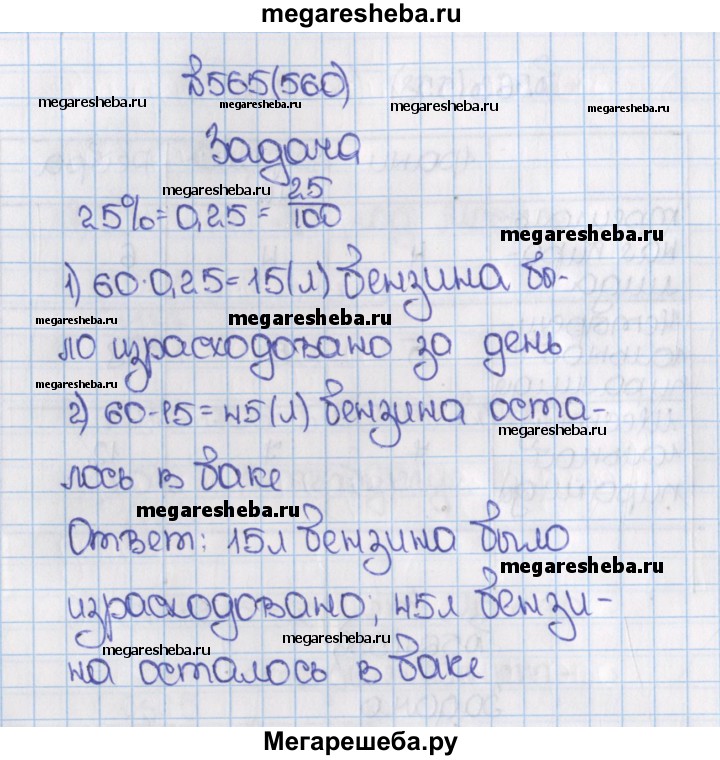 megaresheba.ru
№565(560)
megaresheba.ru megaresheba.ru megaresheba.ru
Задача
megaresheba.ru
25%=0,25=25/100
megaresheba.ru
1) 60·0,25=15(л) бензина бы-
megaresheba.ru megaresheba.ru
ло израсходовано за день
megaresheba.ru
2) 60-15=45(л) бензина оста-
megaresheba.ru
лось в баке
megaresheba.ru
Ответ: 15л бензина было
megaresheba.ru
израсходовано; 45л бензи-
megaresheba.ru megaresheba.ru
на осталось в баке
Мегарешеба.ру